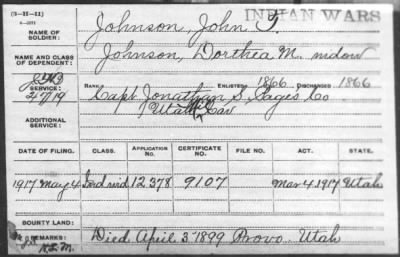 (3-H-11)
INDIAN WARS
NAME OF SOLDIER: Johnson, John F.
NAME AND CLASS OF DEPENDENT: Johnson, Dorthea M. widow
SERVICE: RANK, ENLISTED, 1866 DISCHARGED, 1866
Capt. Jonathan S. Pages Co
Utah Mil Cav
ADDITIONAL SERVICE:
DATE OF FILING. CLASS. APPLICATION NO. CERTIFICATE NO. FILE NO. ACT. STATE.
1917 May 4 Ind wid 12378 9107 Mar 4 1917 Utah
BOUNTY LAND:
REMARKS: Died April 3-1899 Provo, Utah